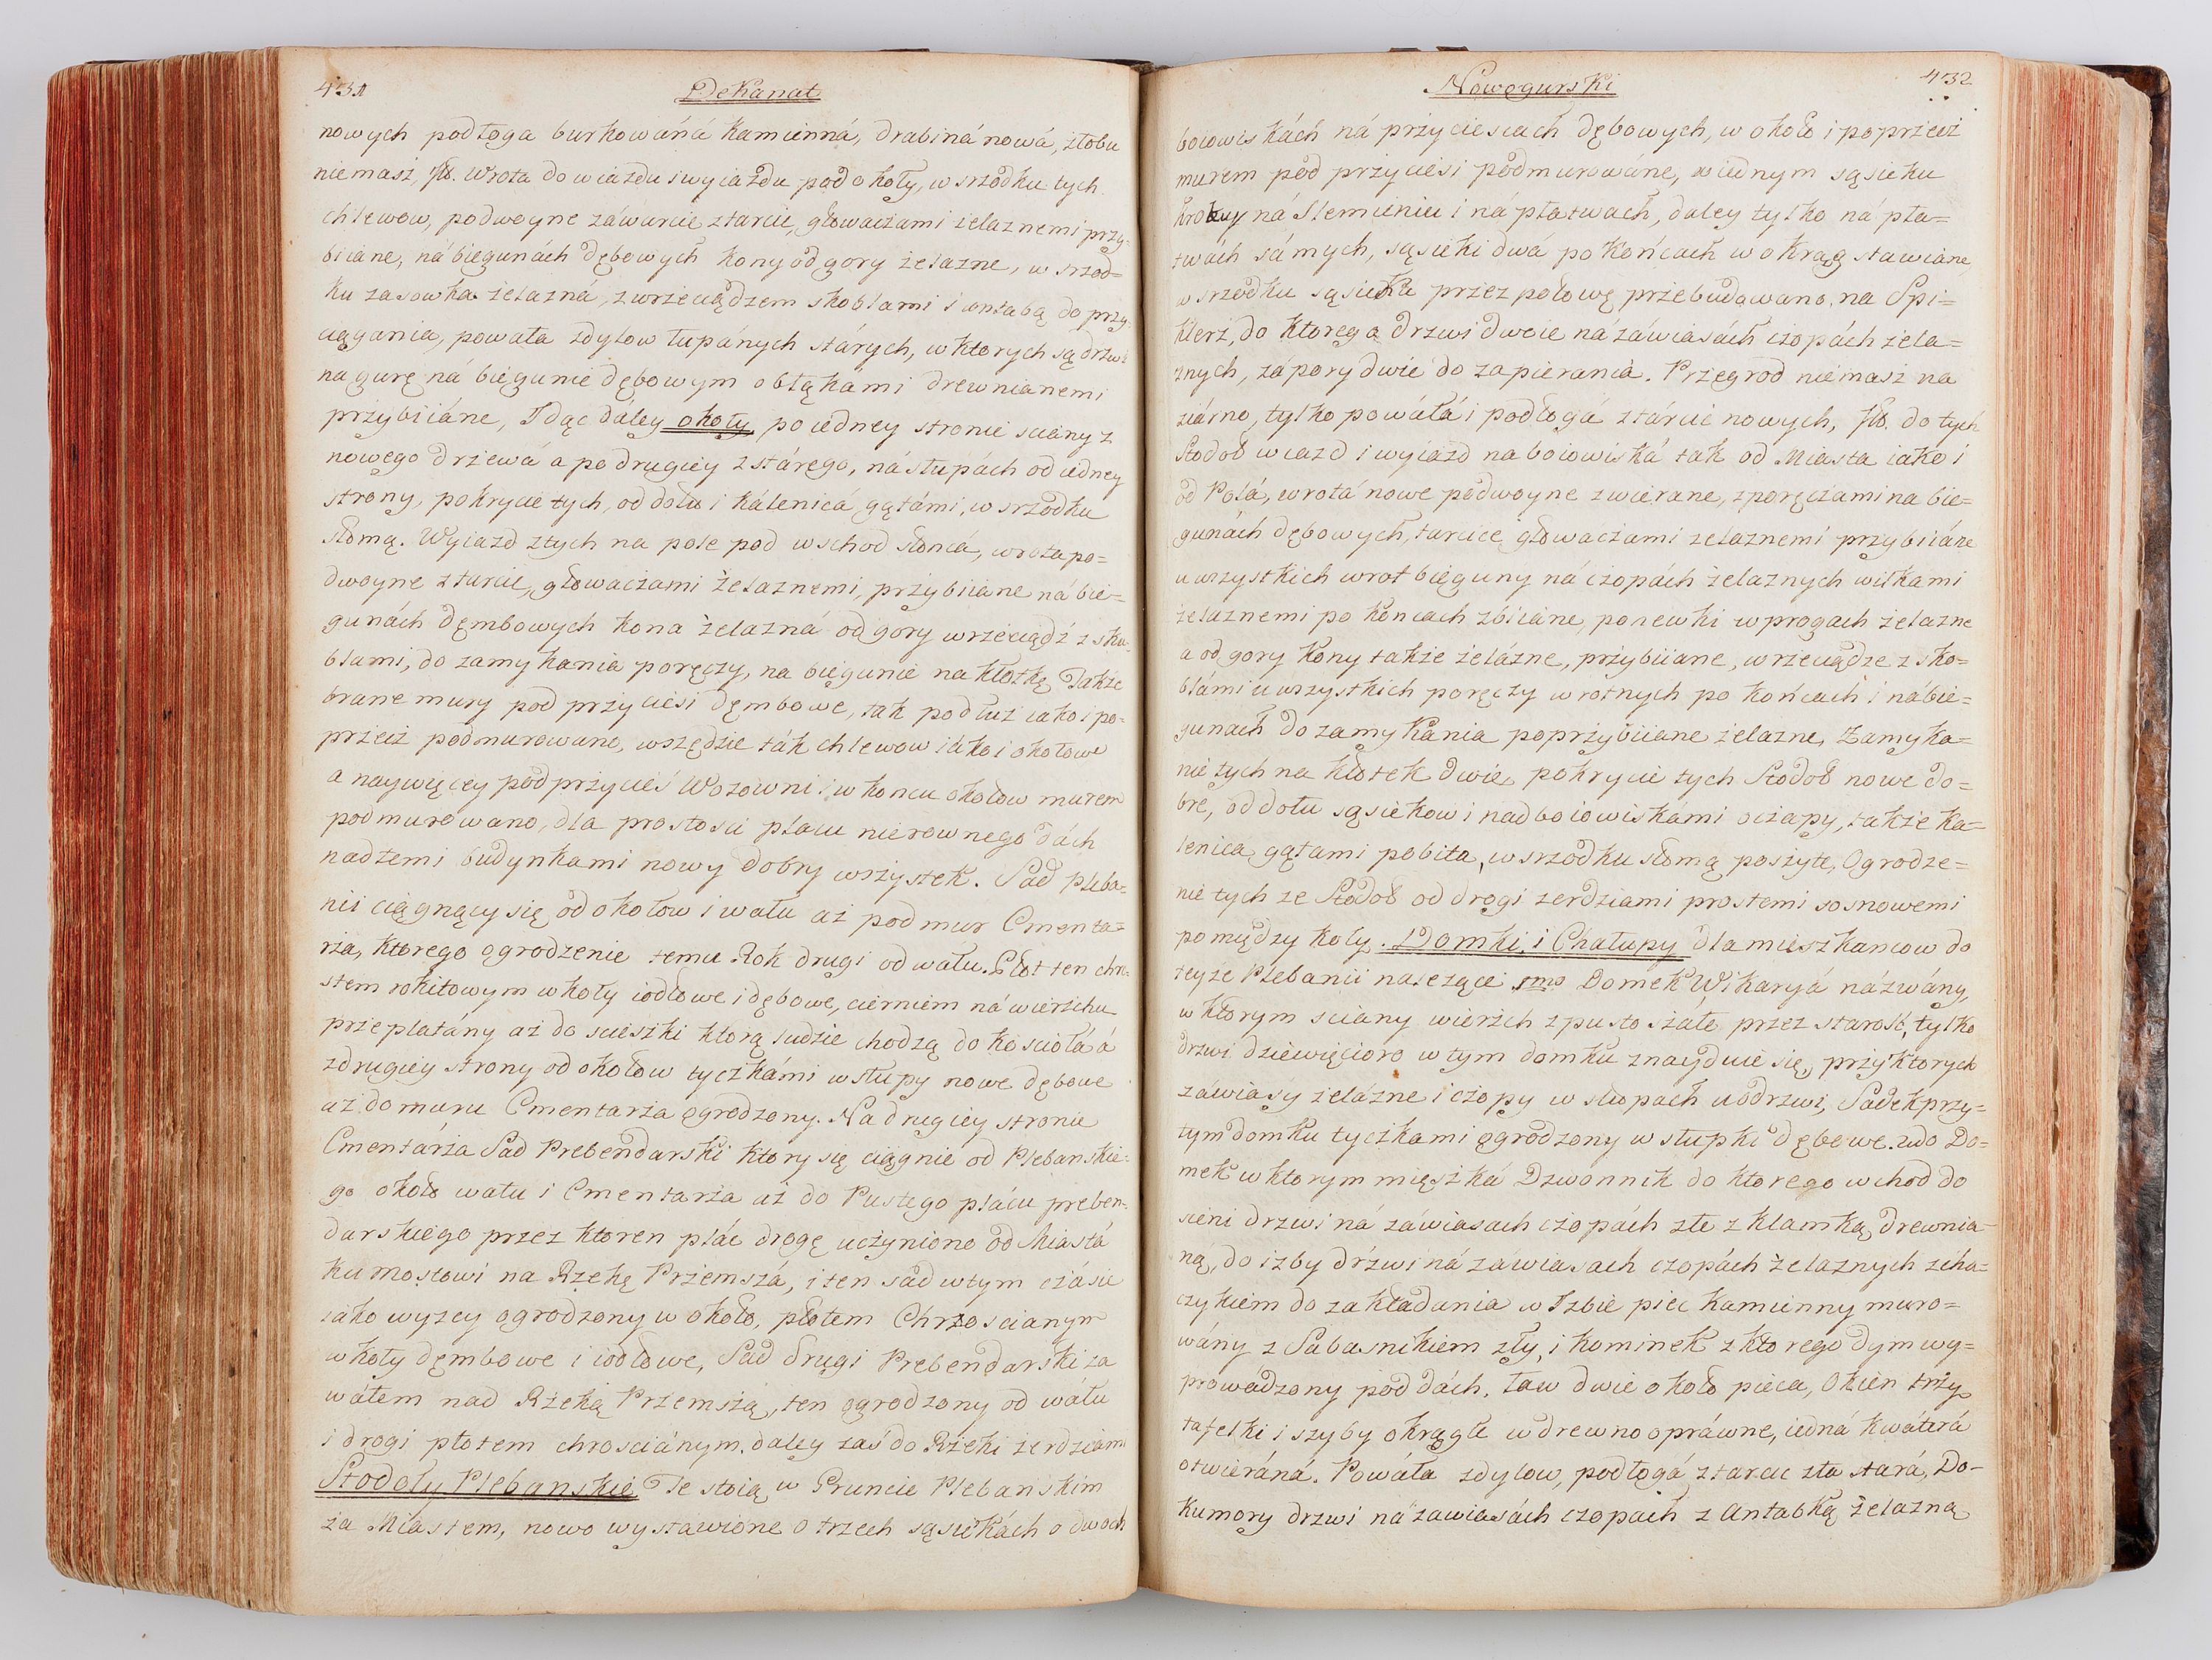 431
Dekanat
nowych podłoga burkowáná kamienná, drabiná nowá, złobu
niemasż, Jtt. Wrota do wiazdu i wyiazdu pod okoły, w srzodku tych
chlewow, podwoyne záwarcie z tarcic, głowaczami zelaznemi przy-
biiane, ná biegunách dębowych kony od gory żelazne, w srzod=
ku zasowka żelazná, z wrzeciądzem skoblami i antabą do przy-
ciągania, powała z dylow łupánych stárych, w ktorych są drzwi
na gurę ná biegunie dębowym obłąkami drewnianemi
przybiiáne, Jdąc dáley okoły po iedney stronie sciany z
nowego drzewá a po drugiey z stárego, ná słupách od iedney
strony, pokrycie tych, od dołu i kálenicá gątámi, w srzodku
słomą. Wyiazd z tych na pole pod wschod słońcá, wrota po=
dwoyne z tarcic, głowaczami żelaznemi, przybiiane ná bie=
gunách dęmbowych kona żelazná od gory wrzeciądź z sko-
blami, do zamykania poręczy, na biegunie na kłotkę Także
brane mury pod przyciesi dęmbowe, tak podłuż iako i po=
przeż podmurowano, wszędzie ták chlewow iáko i okołowe
a naywięcey pod przycieś Wozowni i w koncu okołow murem
podmurowano, dla prostosci placu nierownego Dách
nad temi budynkami nowy dobry wszystek. Sad pleba=
nii ciągnący się od okołow i wału aż pod mur Cmenta=
rza, ktorego ogrodzenie temu Rok drugi od wału. Płot ten chro-
stem rokitowym w koły iodłowe i dębowe, cierniem ná wierzchu
przeplatány aż do scieszki ktorą ludzie chodzą do kościołá á
z drugiey strony od okołow tyczkámi w słupy nowe dębowe
aż do muru Cmentarza ogrodzony. Na drugiey stronie
Cmentárza Sad Prebendarski ktory się ciągnie od Plebanskie-
go około wału i Cmentarza aż do Pustego plácu preben-
darskiego przez ktoren plác drogę uczyniono od Miastá
ku mostowi na Rzekę Przemszá, i ten sad w tym czásie
iako wyzey ogrodzony w około, płotem Chrzoscianym
w koły dęmbowe i iodłowe, Sad drugi Prebendarski za
wałem nad Rzeką Przemszą, ten ogrodzony od wáłu
i drogi płotem chrosciánym, daley zaś do Rzeki żerdziami
Stodoły Plebanskie Te stoią w Gruncie Plebanskim
za Miastem, nowo wystawione o trzech sąsiekách o dwoch
Nowogurski
432
boiowiskách ná przyciesiach dębowych, w około i poprzeż
murem pod przyciesi podmurowáne, w iednym sąsieku
krokwy ná Slemieniu i ná płatwach, daley tylko ná pła=
twách sámych, sąsieki dwá po końcach w okrąg stawiane
w srzodku sąsieka przez połowę przebudowano na Spi=
klerz, do ktorego drzwi dwoie ná záwiasách czopách żela=
znych, zápory dwie do zapierania. Przegrod niemasż na
ziárno, tylko powáłá i podłogá z tárcic nowych, Jtt. do tych
Stodoł wiazd i wyiazd na boiowiská tak od Miasta iako i
od Polá, wrotá nowe podwoyne zwierane, z poręczami na bie=
gunách dębowych, tarcice głowaczami zelaznemi przybiiáne
u wszystkich wrot bieguny ná czopách żelaznych wilkami
żelaznemi po końcach zbiiane, ponewki w progach żelazne
a od gory kony także żelázne, przybiiane, wrzeciądze z sko=
blámi u wszystkich poręczy wrotnych po końcach i ná bie=
gunach do zamykania poprzybiiane żelazne, Zamyka=
nie tych na kłotek dwie, pokrycie tych Stodoł nowe do=
bre, od dołu sąsiekow i nad boiowiskámi oczapy, także ka=
lenica gątami pobita, w srzodku słomą poszyte, Ogrodze=
nie tych ze Stodoł od drogi żerdziami prostemi sosnowemi
pomiędzy koły. Domki i Chałupy dla mieszkancow do
teyże Plebanii nalezące 1mo Domek Wikaryá názwány,
w ktorym sciany wierzch zpustoszałe przez starość, tylko
drzwi dziewięcioro w tym domku znayduie się, przy ktorych
záwiasy żelázne i czopy w słupach u odrzwi, Sadek przy=
tym domku tyczkami ogrodzony w słupki dębowe. 2do Do=
mek w ktorym mięszká Dzwonnik do ktorego wchod do
sieni drzwi ná záwiasach czopách złe z klamką drewnia=
ną, do izby drzwi ná záwiasach czopách żelaznych z ha=
czykiem do zakładania w Jzbie piec kamienny muro=
wány z Sabasnikiem zły, i kominek z ktorego dym wy=
prowádzony pod dách. Ław dwie około pieca, Okien trzy
tafelki i szyby okrągłe w drewno opráwne, iedná kwáterá
otwieráná. Powáła z dylow, podłogá z tarcic zła stará, Do-
kumory drzwi ná zawiasách czopach z Antabką żelazną